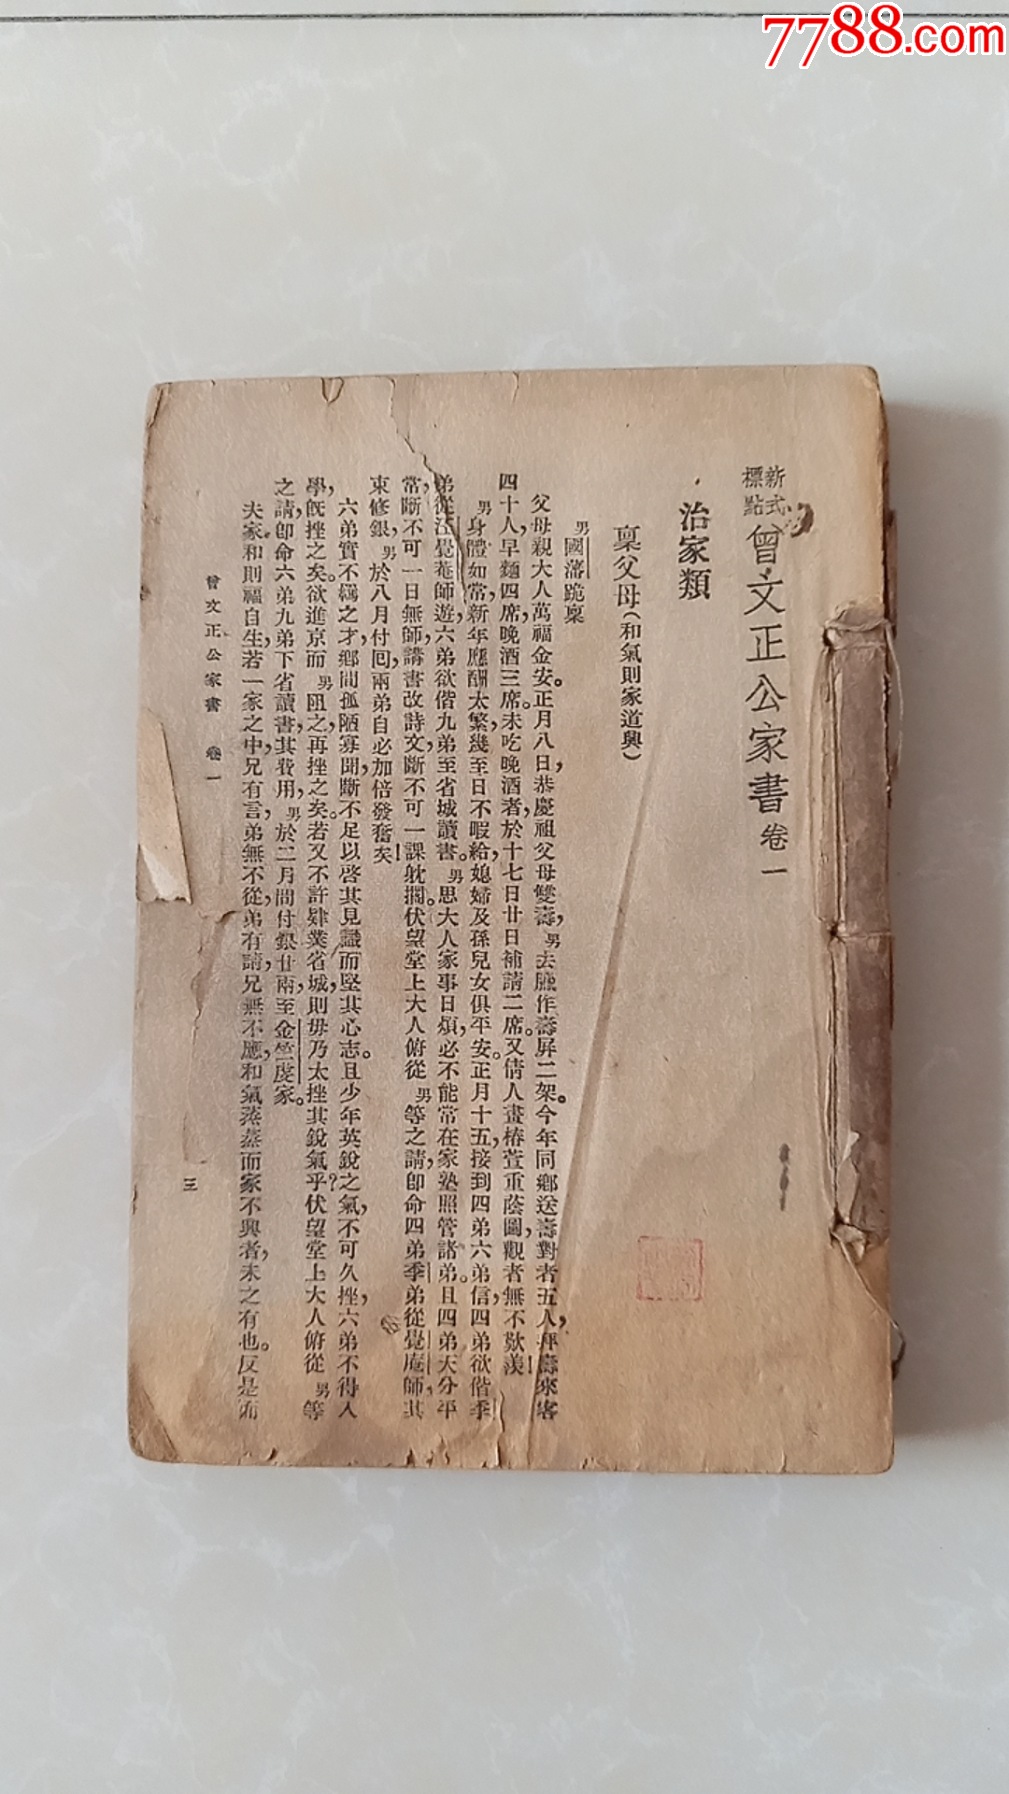 7788.com
新式標點曾文正公家書卷一
治家類
稟父母(和氣則家道興)
男國藩跪稟
父母親大人萬福金安。正月八日,恭慶祖父母雙壽,男去臘作壽屏二架。今年同鄉送壽對者五人,拜壽來客
四十人,早麵四席,晚酒三席。未吃晚酒者,於十七日廿日補請二席。又倩人畫椿萱重蔭圖,觀者無不歎羨!
男身體如常,新年應酬太繁,幾至日不暇給,媳婦及孫兒女俱平安。正月十五,接到四弟六弟信,四弟欲偕季
弟從汪覺菴師遊,六弟欲偕九弟至省城讀書。男思大人家事日煩,必不能常在家塾照管諸弟。且四弟天分平
常,斷不可一日無師講書改詩文,斷不可一課耽擱。伏望堂上大人俯從男等之請,即命四弟季弟從覺庵師,其
束修銀,男於八月付回,兩弟自必加倍發奮矣!
六弟實不羈之才,鄉間孤陋寡聞,斷不足以啓其見識而堅其心志。且少年英銳之氣,不可久挫,六弟不得入
學,既挫之矣,欲進京而男阻之,再挫之矣。若又不許肄業省城,則毋乃太挫其銳氣乎?伏望堂上大人俯從男等
之請,卽命六弟九弟下省讀書,其費用,男於二月間付銀廿兩至金竺虔家。
夫家和則福自生,若一家之中,兄有言,弟無不從,弟有請,兄無不應,和氣蒸蒸而家不興者,未之有也。反是而
曾文正公家書 卷一
三